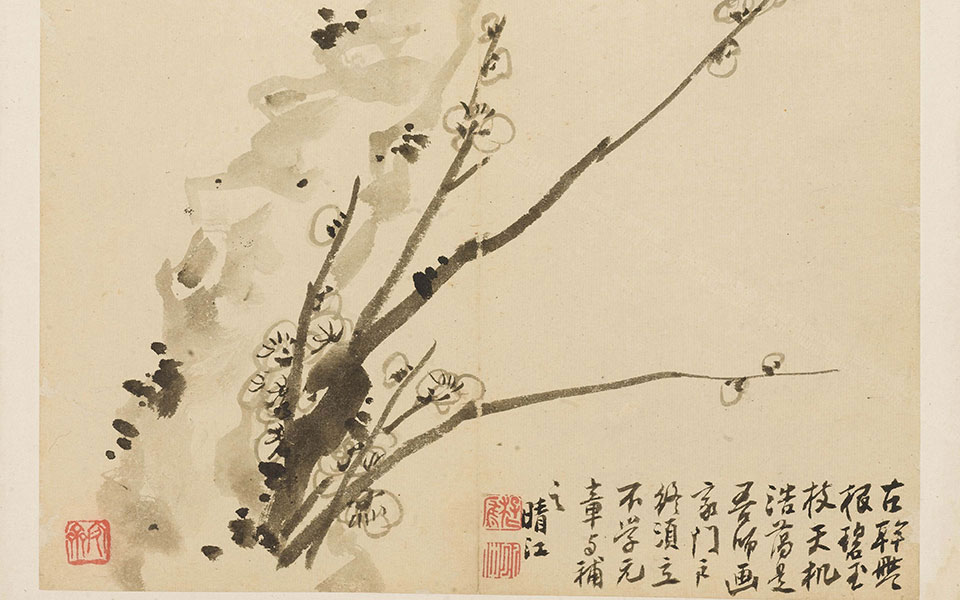 古幹盤
根碧玉
枝天机
浩蕩是
吾師画
家門户
終須立
不學元
章与補
之
晴江